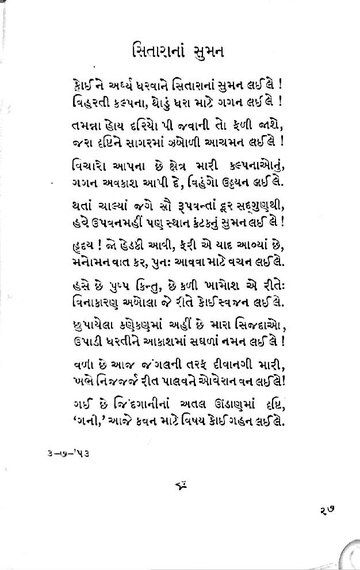 સિતારાનાં સુમન
કોઈ ને અર્ઘ્ય ધરવાને સિતારાનાં સુમન લઈ લે !
વિહરતી કલ્પના, થોડું ધરા માટે ગગન લઈ લે !
તમન્ના હોય દરિયો પી જવાની તો ફળી જાશે,
જરા દૃષ્ટિને સાગરમાં ઝબોળી આચમન લઈ લે !
વિચારો આપના છે ક્ષેત્ર મારી કલ્પનાઓનું,
ગગન અવકાશ આપી દે, વિહંગો ઉડ્ડયન લઈ લે.
થતાં ચાલ્યાં જગે સૌ રૂપવન્તાં દૂર સદ્ગુણથી,
હવે ઉપવનમહીં પણ સ્થાન કંટકનું સુમન લઈ લે !
હૃદય ! જો હેડકી આવી, ફરી એ યાદ આવ્યાં છે,
મનોમન વાત કર, પુનઃ આવવા માટે વચન લઈ લે.
હસે છે પુષ્પ કિન્તુ, છે કળી ખામોશ એ રીતેઃ
વિનાકારણ અબોલા જે રીતે કોઈ સ્વજન લઈ લે.
છુપાયેલા કણેકણમાં અહીં છે મારા સિજદાઓ,
ઉપાડી ધરતીને આકાશમાં સઘળાં નમન લઈ લે !
વળી છે આજ જંગલની તરફ દીવાનગી મારી,
ખભે નિજ જર્જરીત પાલવને ઓ વેરાન વન લઈ લે!
ગઈ છે જિંદગાનીનાં અતલ ઊંડાણમાં દૃષ્ટિ,
‘ગની,’ આજે કવન માટે વિષય કોઈ ગહન લઈ લે.
૩-૭-’૫૩
૨૭